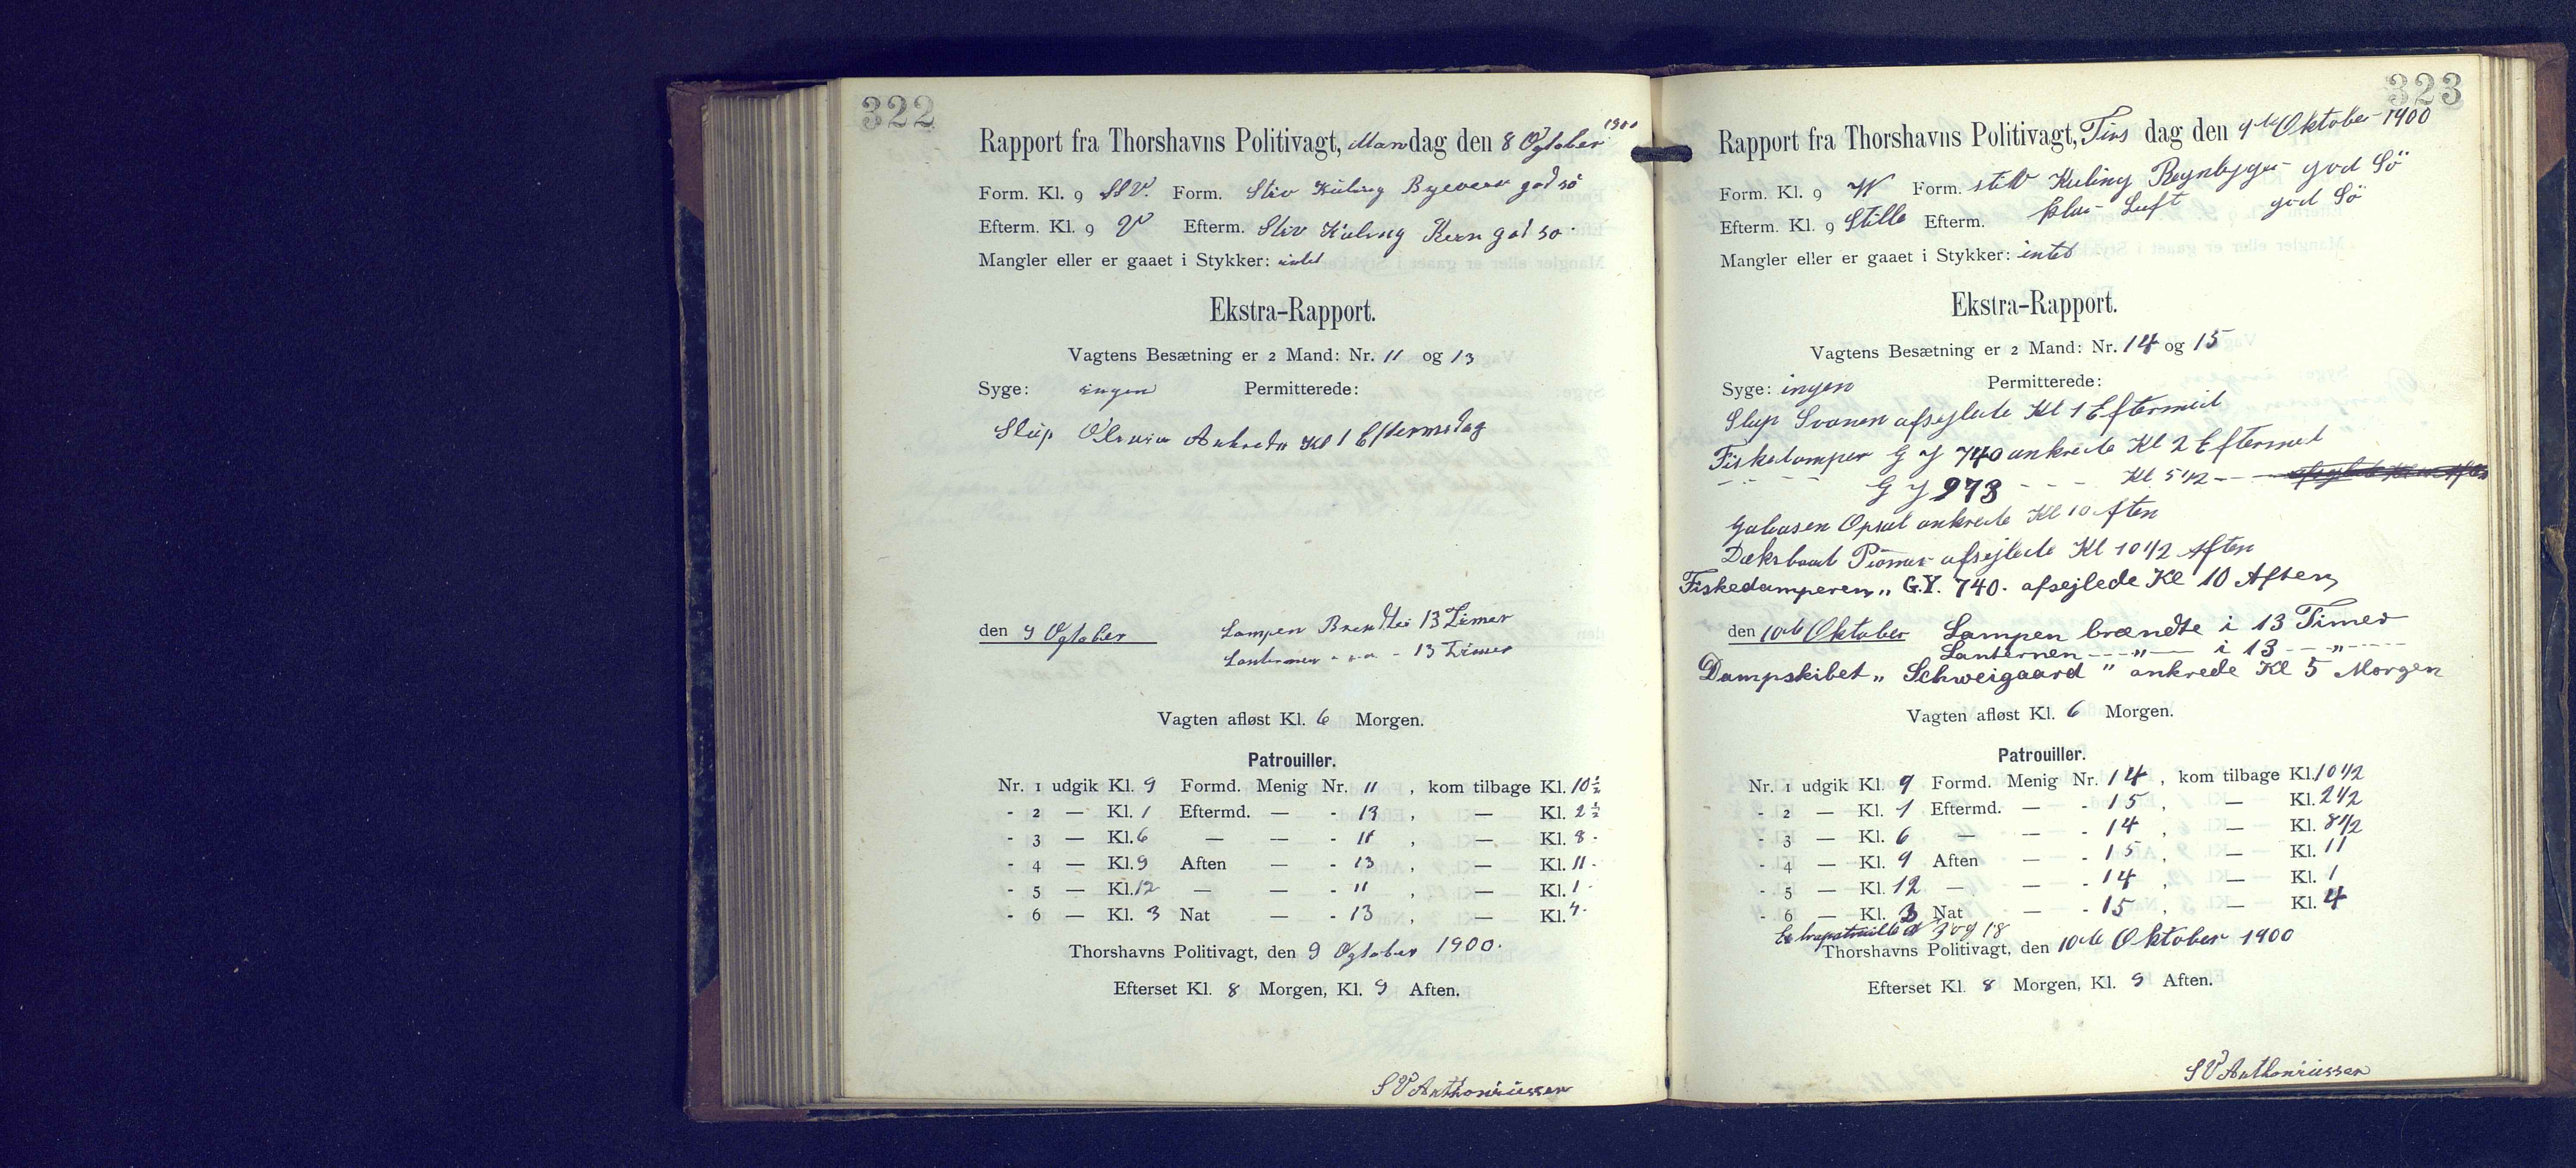 322
Rapport fra Thorshavns Politivagt, Mandag den 8 Ogtober 1900
Form. Kl. 9 SSV. Form. Stiv Kuling Byeveer god sö
Efterm. Kl. 9 V Efterm. Stiv Kuling Reen god sö
Mangler eller er gaaet i Stykker: intet
Ekstra-Rapport.
Vagtens Besætning er 2 Mand: Nr. 11 og 13
Syge: ingen Permitterede:
Slup Ankrede Kl 1 Eftermedag
den 9 Ogtober Lampen Brendte i 13 Timer
Lanternen - " - 13 Timer
Vagten afløst Kl. 6 Morgen.
Patrouiller.
Nr. 1 udgik Kl. 9 Formd. Menig Nr. 11 , kom tilbage Kl. 10 ½
- 2 — Kl. 1 Eftermd. — - 13 , — Kl. 2 ½
- 3 — Kl. 6 — — - 11 , — Kl. 8 -
- 4 — Kl. 9 Aften — - 13 , — Kl. 11 -
- 5 — Kl. 12 — — - 11 , — Kl. 1 -
- 6 — Kl. 3 Nat — - 13 , — Kl. 4 -
Thorshavns Politivagt, den 9 Ogtober 1900.
Efterset Kl. 8 Morgen, Kl. 9 Aften.
S V Anthoniussen
323
Rapport fra Thorshavns Politivagt, Tirs dag den 9de Oktober 1900
Form. Kl. 9 W Form. stiv Kuling Regnbyger god Sö
Efterm. Kl. 9 Stille Efterm. klar Luft god Sö
Mangler eller er gaaet i Stykker: intet
Ekstra-Rapport.
Vagtens Besætning er 2 Mand: Nr. 14 og 15
Syge: ingen Permitterede:
Slup Svanen afsejlede Kl 1 Eftermid
Fiskedamper G Y 740 ankrede Kl 2 Eftermid
- - - - G Y 973 - - - Kl 5 1/2 - -
Galeasen Opsal ankrede Kl 10 Aften
Dæksbaad Pioner afsejlede Kl 10 1/2 Aften
Fiskedamperen „ G.Y. 740. afsejlede Kl 10 Aften
den 10de Oktober Lampen brændte i 13 Timer
Lanternen - - „ — i 13 - - „ - - -
Dampskibet „ Schweigaard " ankrede Kl 5 Morgen
Vagten afløst Kl. 6 Morgen.
Patrouiller.
Nr. 1 udgik Kl. 9 Formd. Menig Nr. 14 , kom tilbage Kl. 10 1/2
- 2 — Kl. 1 Eftermd. — - 15 , — Kl. 2 1/2
- 3 — Kl. 6 — — - 14 , — Kl. 8 1/2
- 4 — Kl. 9 Aften — - 15 , — Kl. 11
- 5 — Kl. 12 — — - 14 , — Kl. 1
- 6 — Kl. 3 Nat — - 15 , — Kl. 4
Extrapatruille og 18
Thorshavns Politivagt, den 10de Oktober 1900
Efterset Kl. 8 Morgen, Kl. 9 Aften.
S V Anthoniussen